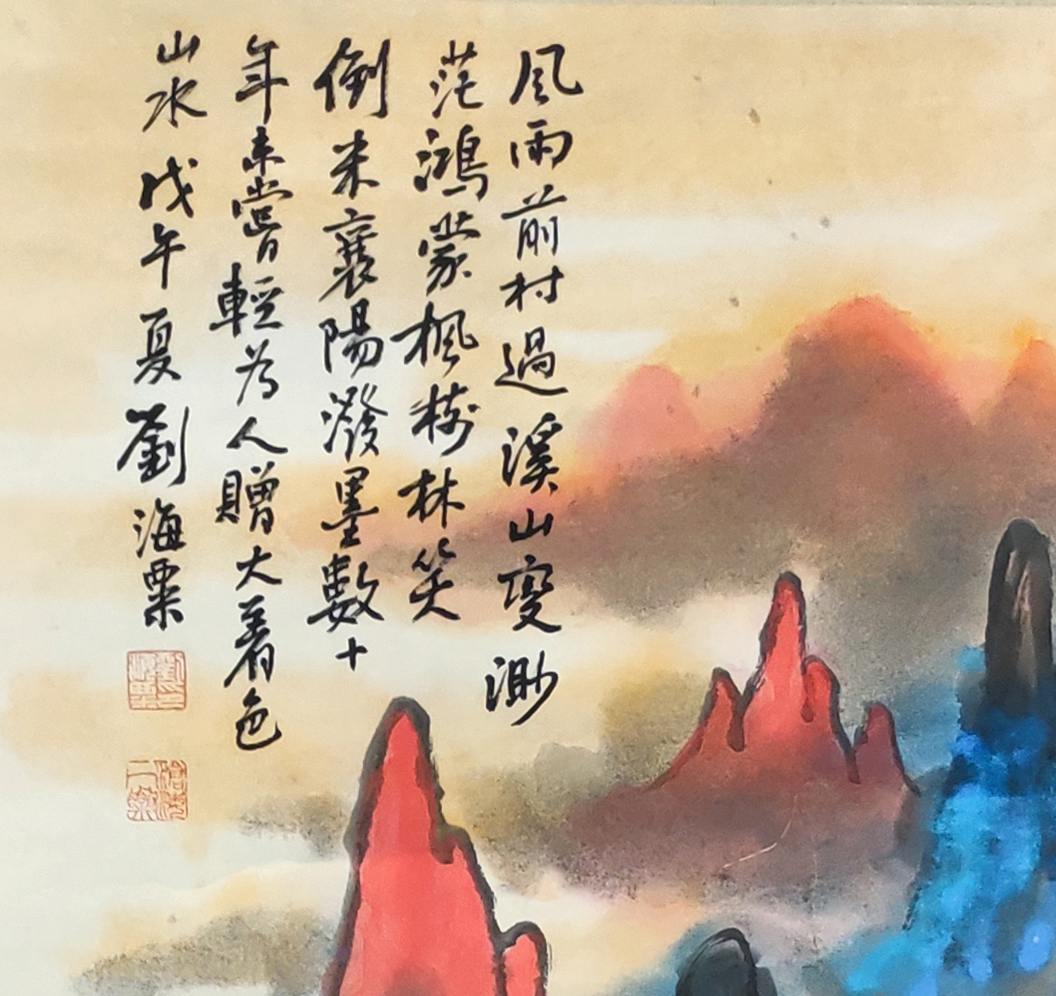 風雨前村過溪山變渺
茫鴻蒙楓樹林笑
倒米襄陽潑墨數十
年未嘗輕為人贈大着色
山水戊午夏劉海粟
滄海一粟